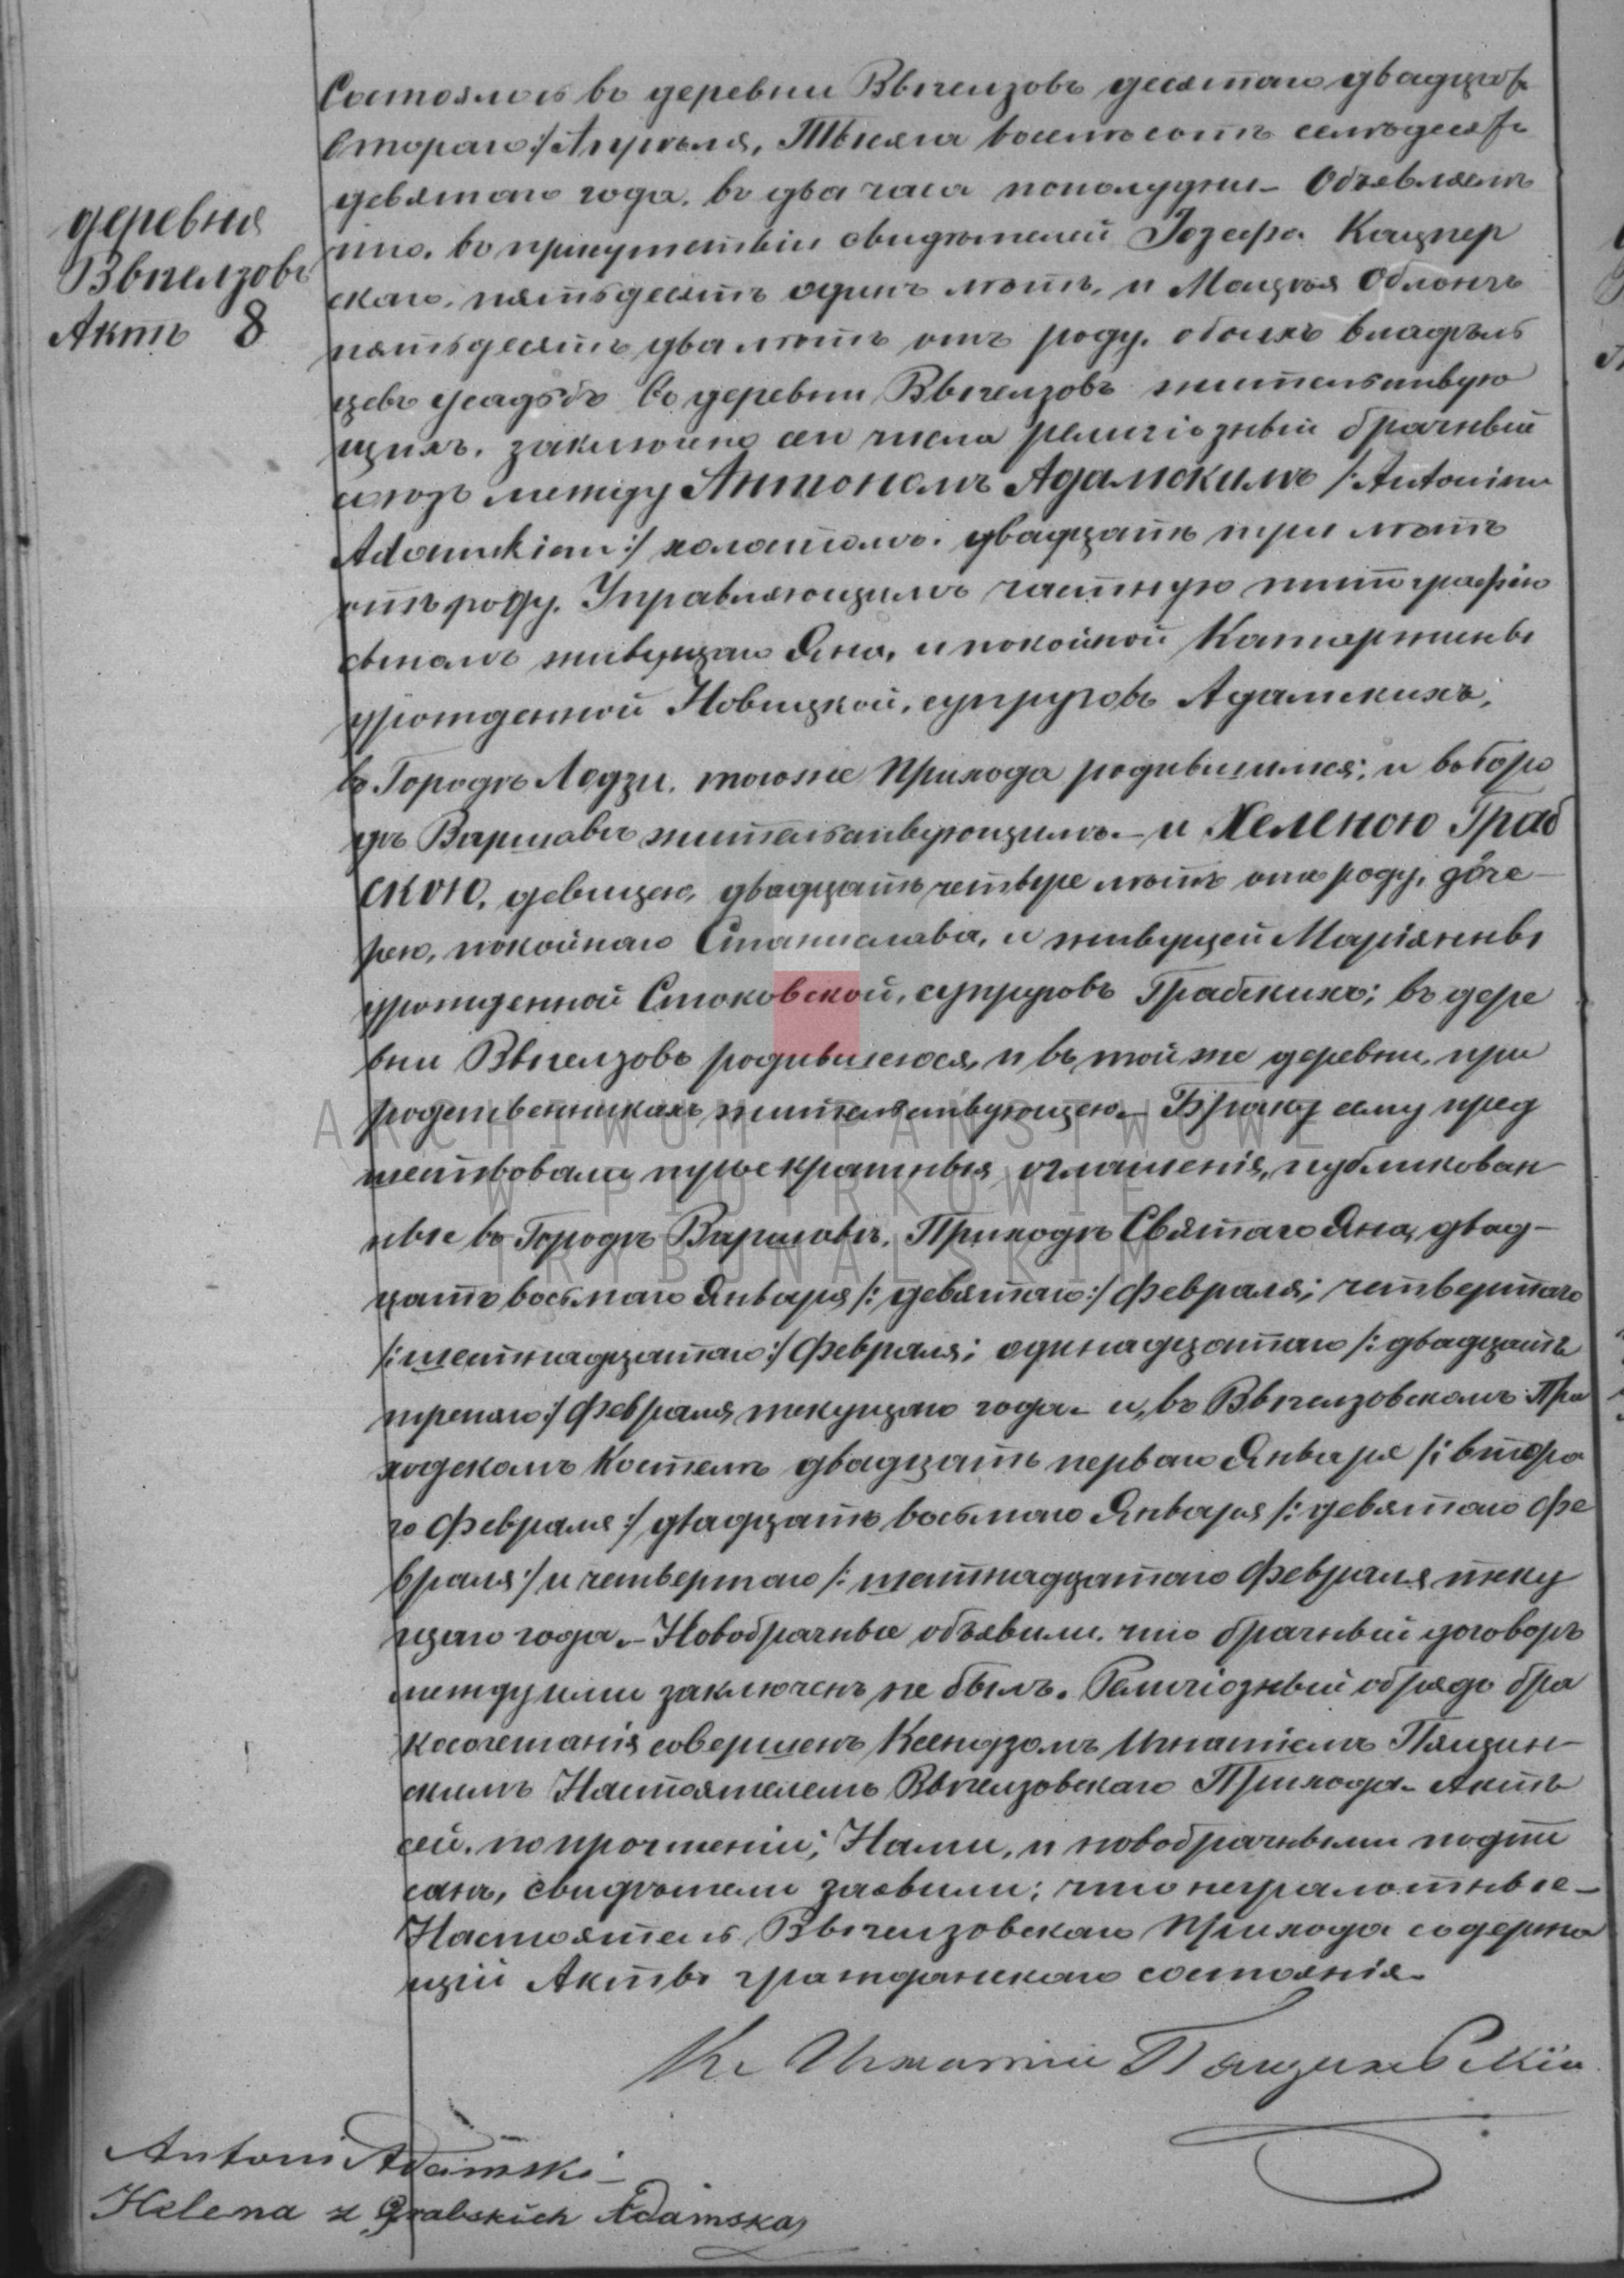 деревня
Вычелзовъ
Актъ 8
Состоялось въ деревни Вычелзовъ десятаго двадцать
втораго :/ Апрѣля, Тысяча восемьсотъ семьдесять
девятаго года, въ два часа пополудни – Объявляемъ
что, въ присутствіи свидѣтелей Іозефа Кацпер
скаго, пятьдесятъ одинъ лѣтъ, и Мацѣя Облонгъ
пятьдесятъ два лѣтъ отъ роду, обоихъ владѣль
цевъ усадьбъ во деревни Вычелзовъ жительствую
щихъ, заключено сего числа религіозный брачный
союзъ между Антономъ Адамскимъ /: Antonim
Adamskiem :/ холостомъ, двадцать три лѣтъ
отъ роду, Управляющимъ частную типографію
сыномъ живущаго Яна, и покойной Катаржины
урожденной Новицкой, супруговъ Адамскихъ,
въ Городѣ Лодзи, тогоже Прихода родившимся; и въ горо
дѣ Варшавѣ жительствующимъ. – и Хеленою Граб
скою, девицею, двадцать четвере лѣтъ отъ роду, доче–
рею, покойнаго Станислава, и живущей Маріянны
урожденной Стоковской, супруговъ Грабскихъ; въ дере
вни Вычелзовъ родившеюся, и въ той же деревни, при
родственникахъ жительствующею. – Браку сему пред
шествовали троекратныя оглашенія, публикован–
ные въ Городѣ Варшавѣ, Приходѣ Святаго Яна, двад–
цать восьмаго Января /: девятаго :/ Февраля; четвертаго
/: шестнадцатаго :/ Февраля; одинадцатаго /: двадцать
третяго :/ Февраля текущаго года – и, въ Вычелзовскомъ При
ходскомъ Костелѣ двадцать перваго Января /: втора
го Февраля :/ двадцать восьмаго Января /: девятаго Фе
враля :/ и четвертаго /: шестнадцатаго Февраля теку
щаго года. – Новобрачные объявили, что брачный договоръ
между ими заключенъ не былъ. Религіозный обрядъ бра
косочетанія совершенъ Ксендзомъ Игнатіемъ Пящин–
скимъ Настоятелемъ Вычелзовскаго Прихода – Актъ
сей, по прочтеніи, Нами, и новобрачными подпи
санъ, свидѣтели заявили; что неграмотные –
Настоятель Вычелзовскаго Прихода содержа
щій Акты гражданскаго состоянія –
Кс Игнатій Пящинскій
Antoni Adamski –
Helena z Grabskich Adamska
ARCHIWUM PAŃSTWOWE
W PIOTRKOWIE
TRYBUNALSKIM